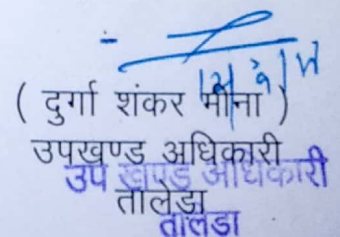 ( दुर्गा शंकर मीना )
उपखण्ड अधिकारी
उप खण्ड अधिकारी
तालेडा
तालेडा